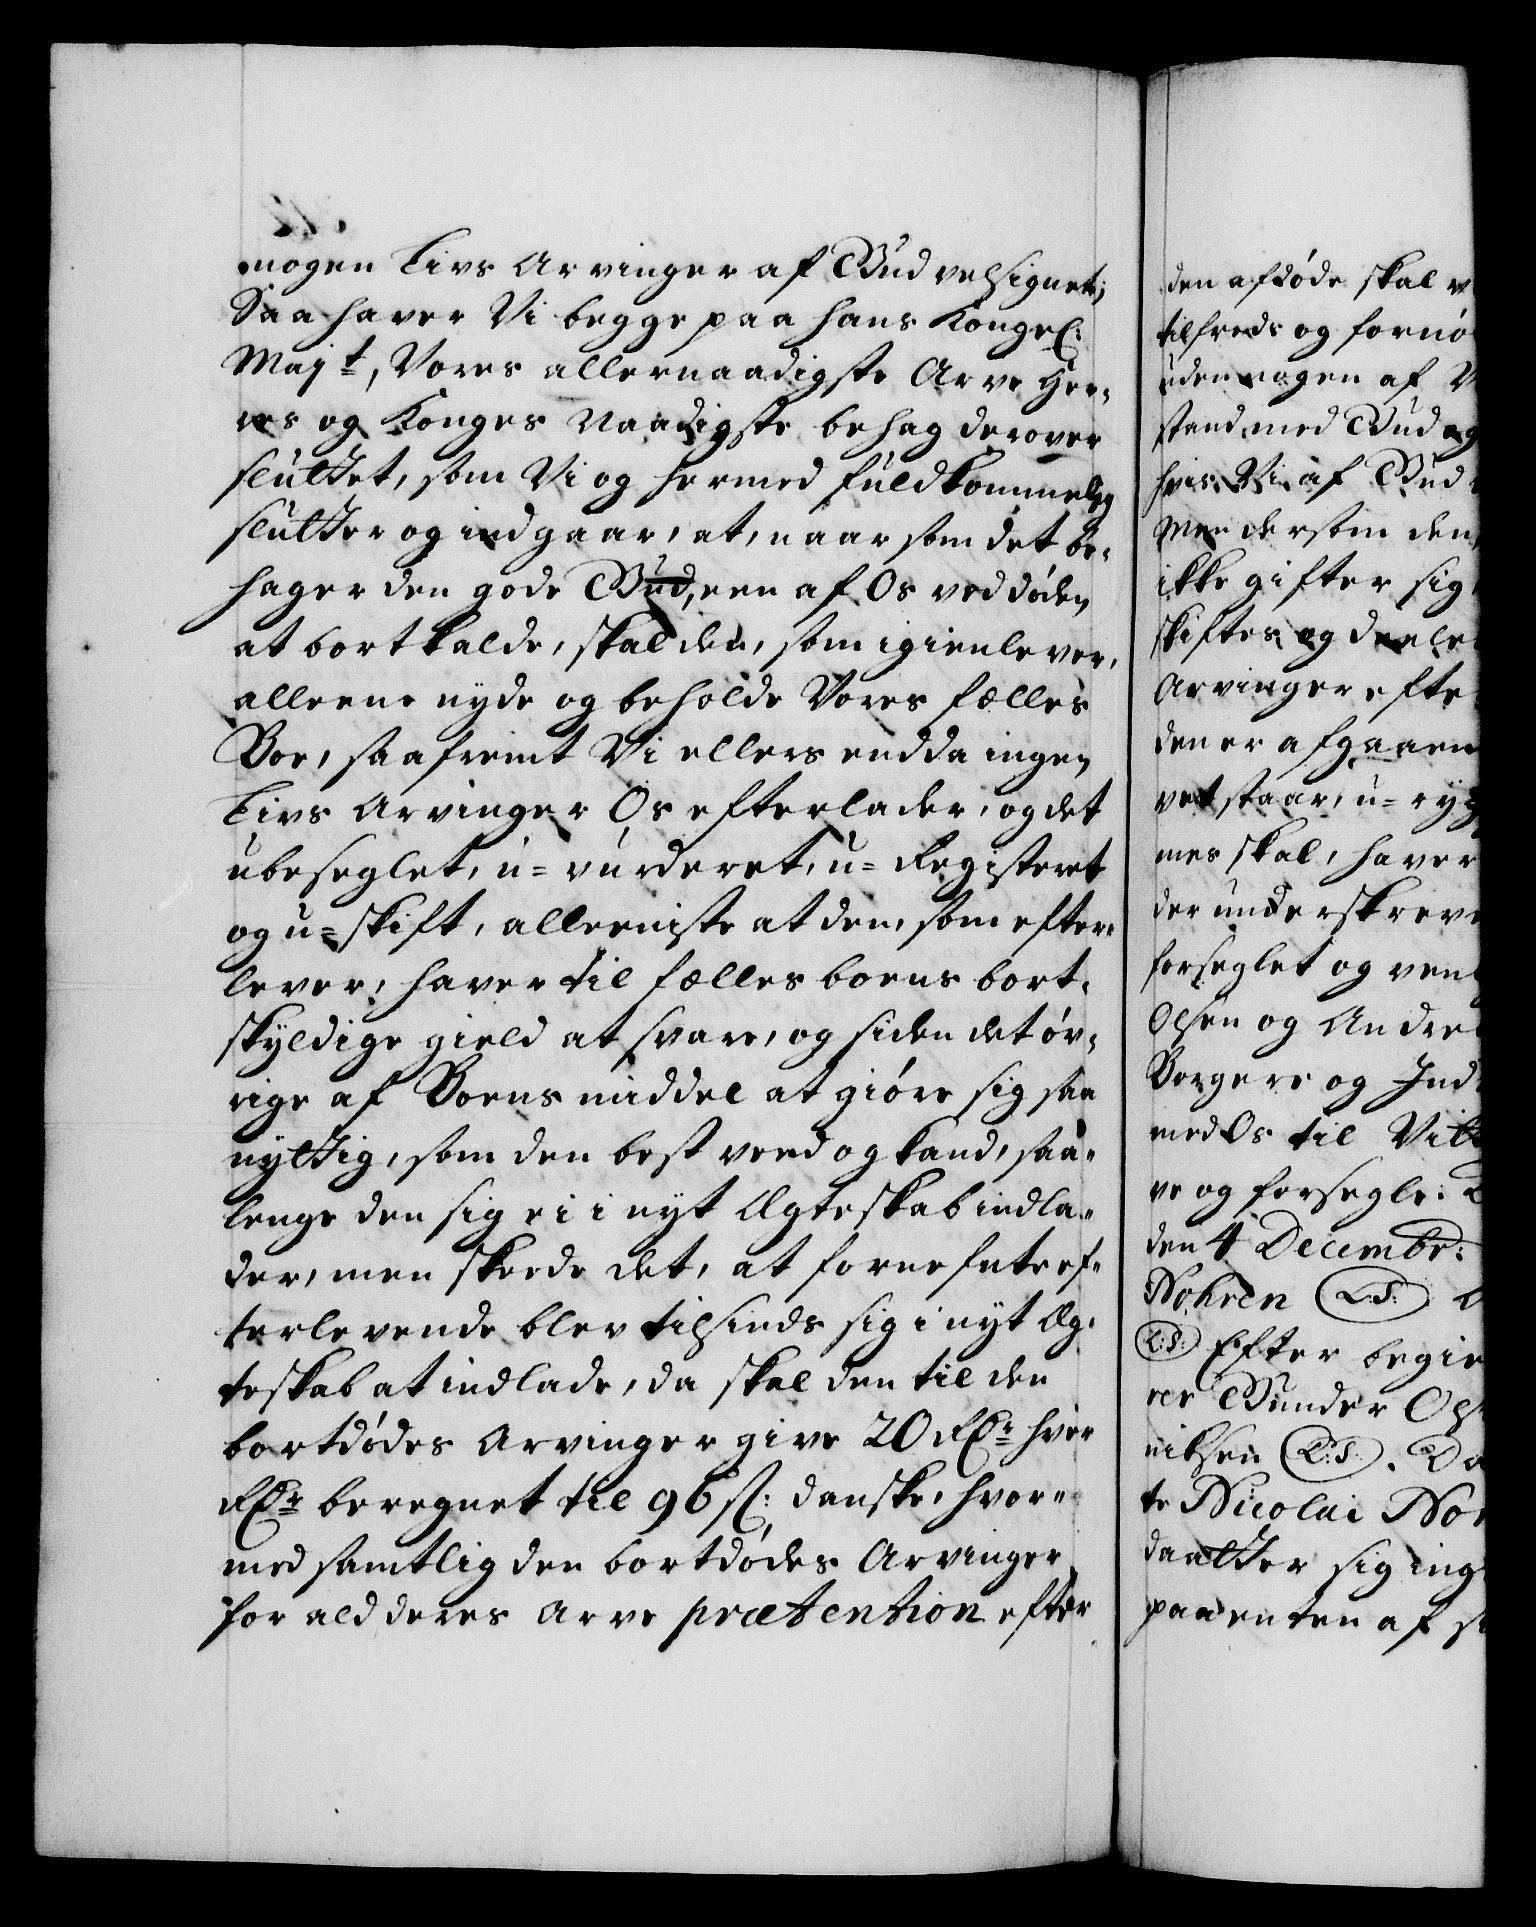 nogen Livs Arvinger af Gud velsignet,
Saa haver Vi begge paa hans Kongel:
Mayt, Vores allernaadigste Arve Her-
res og Konges Naadigste behag derover
sluttet, som Vi og hermed fuldkommelig
slutter og indgaar, at, naar som det be-
hager den gode Gud, een af Os ved døden
at bortkalde, skal den, som igienlever,
alleene nyde og beholde Vores fælles
Boe, saafremt Vi ellers endda ingen
Livs Arvinger Os efterlader, og det
ubeseglet, u-vurderet, u-Registeret
og u-skift, alleeniste at den, som efter-
lever, haver til fælles boens bort-
skyldige gield at svare, og siden det øv-
rige af Boens middel at giøre sig saa
nyttig, som den best veed og kand, saa-
lenge den sig ei i nyt Ægteskab indla-
der, men skeede det, at fornefnte ef-
terlevende blev tilsinds sig i nyt Æg-
teskab at indlade, da skal den til den
bortdødes Arvinger give 20 Rdr hver
Rdr beregnet til 96 s: danske, hvor-
med samtlig den bortdødes Arvinger
for ald deres Arve prætention efter
den afdøde skal v
tilfreds og fornø
uden nogen af V
stand med Gud og
hvis Vi af Gud
Men dersom den
ikke gifter sig
skiftes og deele
Arvinger efte
den er afgaaen
vet staar, u-ryg
mes skal, haver
der underskreve
forseglet og ven
Olsen og Andre
Borgere og Ind
med Os til Vitt
ve og forsegle.
den 4 Decembr:
Nohren L.S.
L:S: Efter begie
rer Gunder Ols
nilsen L:S:. Da
te Nicolai Nor
daatter sig ing
paa enten af s